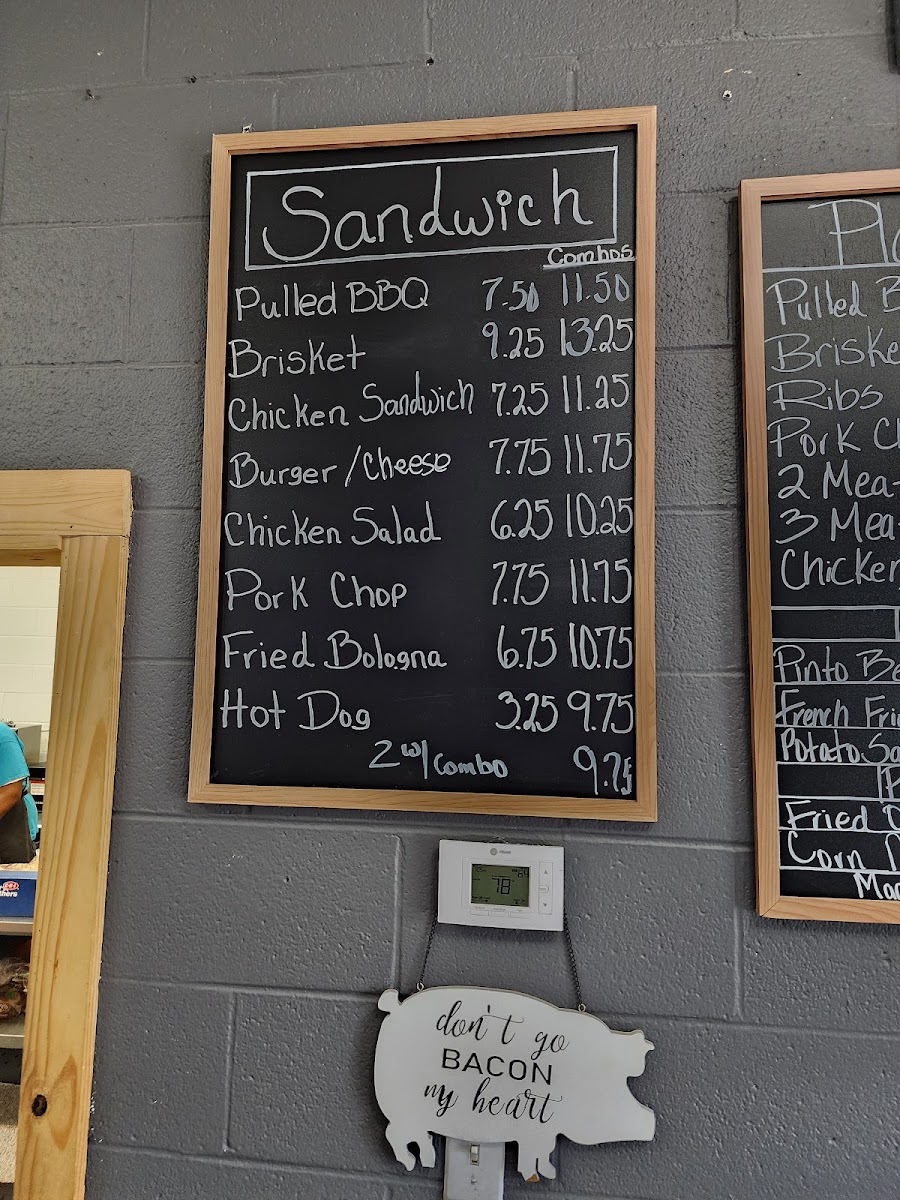 Sandwich
Combos
Pulled BBQ 7.50 11.50
Brisket 9.25 13.25
Chicken Sandwich 7.25 11.25
Burger/Cheese 7.75 11.75
Chicken Salad 6.25 10.25
Pork Chop 7.75 11.75
Fried Bologna 6.75 10.75
Hot Dog 3.25 9.75
2 w/ combo 9.75
Pl
Pulled B
Briske
Ribs
Pork C
2 Mea
3 Mea
Chicken
Pinto Be
French Fri
Potato Sa
Fried
Corn
Mac
78
don't go
BACON
my heart